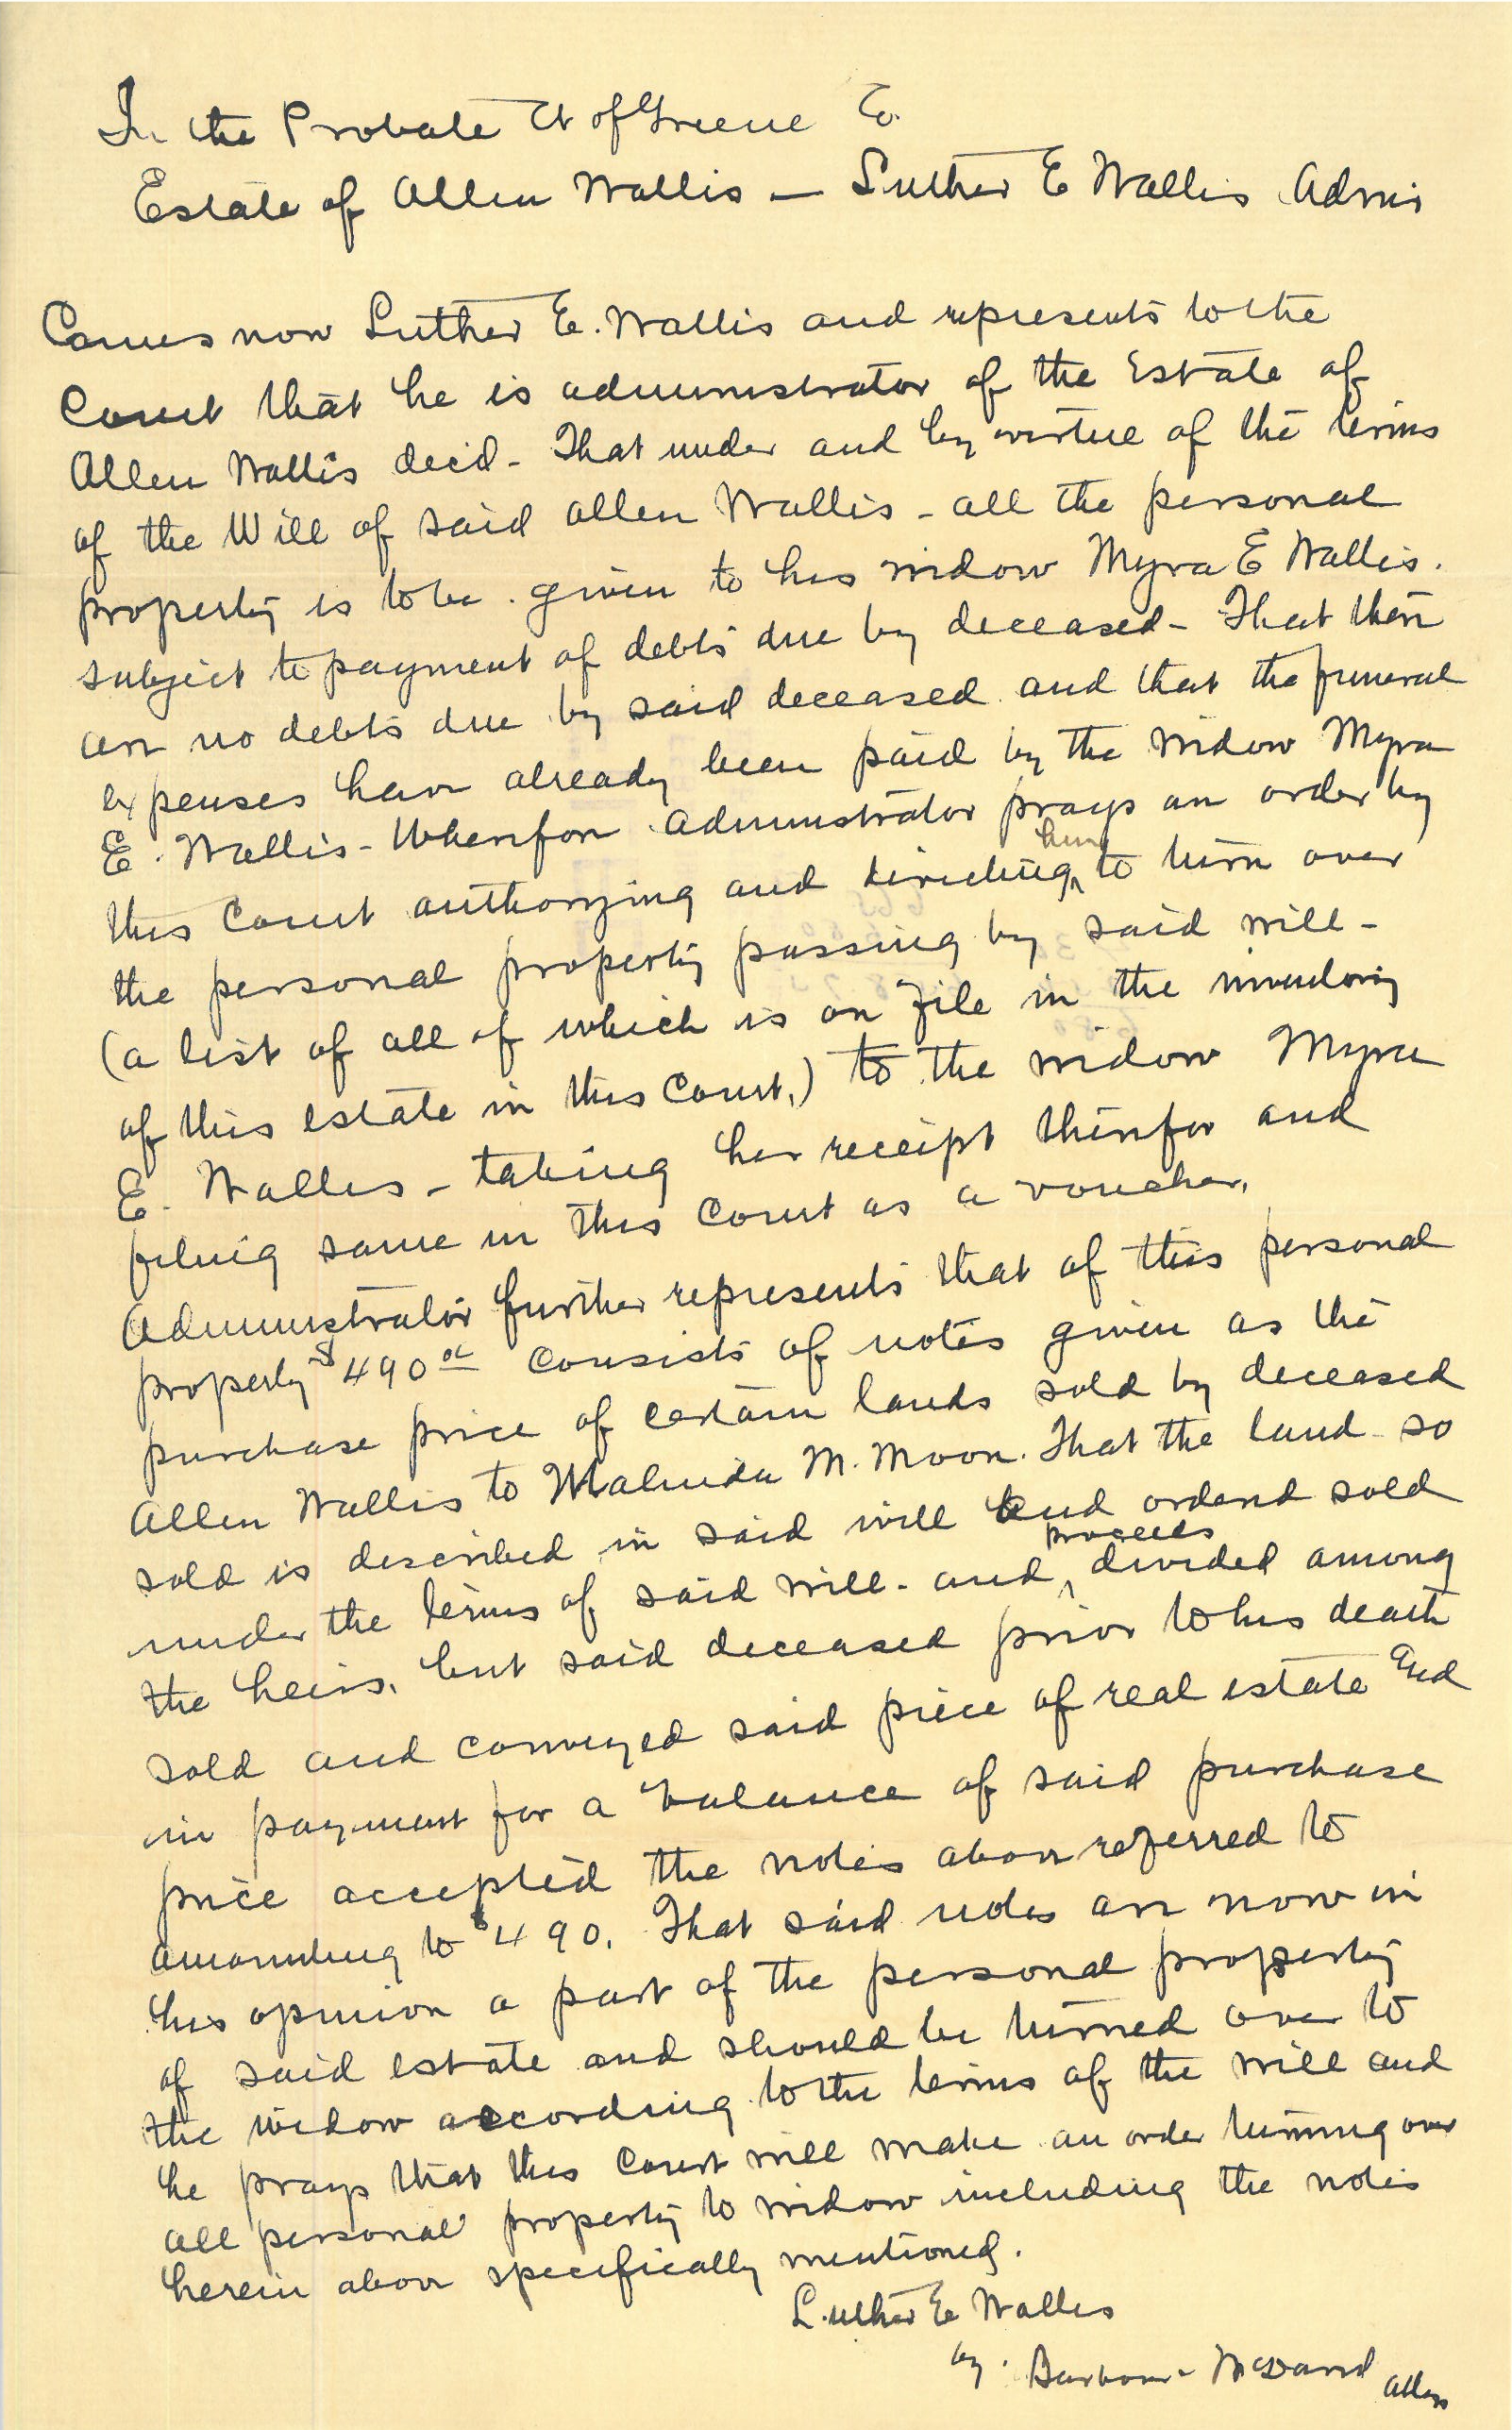 In the Probate Ct of Greene Co.
Estate of Allen Wallis — Luther E Wallis Admr
Comes now Luther E. Wallis and represents to the
Court that he is administrator of the Estate of
Allen Wallis decd - That under and by virtue of the terms
of the Will of said Allen Wallis - all the personal
property is to be given to his widow Myra E Wallis.
subject to payment of debts due by deceased - That there
are no debts due by said deceased and that the funeral
expenses have already been paid by the widow Myra
E. Wallis - Wherefore Administrator prays an order by
him
this Court authorizing and directing ^ to turn over
the personal property passing by said will -
(a list of all of which is on file in the inventory
of this estate in this Court.) to the widow Myra
E. Wallis - taking her receipt therefor and
filing same in this Court as a voucher.
Administrator further represents that of this personal
property $490 00 consists of notes given as the
purchase price of certain lands sold by deceased
Allen Wallis to Malinda M. Moon. That the land so
sold is described in said will and ordered sold
proceeds
under the terms of said will - and ^ divided among
the heirs, but said deceased prior to his death
sold and conveyed said piece of real estate and
in payment for a balance of said purchase
price accepted the notes above referred to
amounting to $490. That said notes are now in
his opinion a part of the personal property
of said estate and should be turned over to
the widow according to the terms of the will and
he prays that this Court will make an order turning over
all personal property to widow including the notes
herein above specifically mentioned.
Luther E Wallis
by. Barbour - McDavid Attys